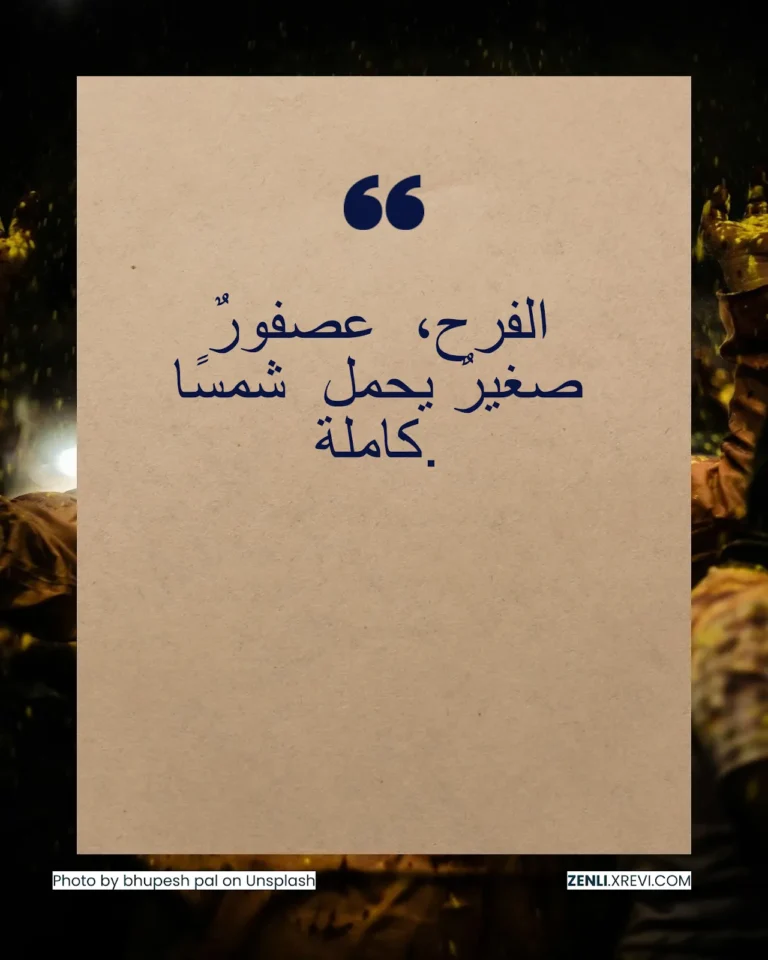 ❝
الفرح، عصفورٌ
صغيرٌ يحمل شمسًا
كاملة.
Photo by bhupesh pal on Unsplash
ZENLI.XREVI.COM